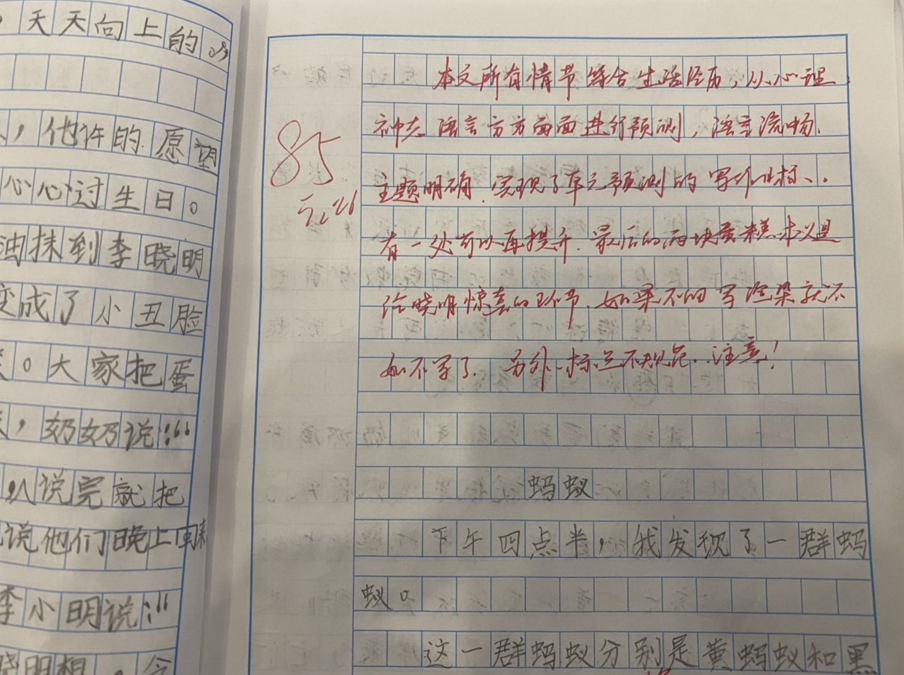 天天向上的。
，他许的愿望
心心过生日。
油抹到李晓明
变成了小丑脸
。大家把蛋
，奶奶说：“
说完就把
说他们晚上回来
李小明说：“
晓明想，今
85
5.26
本文所有情节结合生活经历，从心理、
神态、语言方方面面进行预测，语言流畅、
主题明确，实现了单元预测的写作目标、
有一处可以再提升，最后的两块蛋糕本义是
给晓明惊喜的环节，如果不写渲染就不
如不写了。另外，标点不规范，注意！
蚂蚁
下午四点半，我发现了一群蚂
蚁。
这一群蚂蚁分别是黄蚂蚁和黑